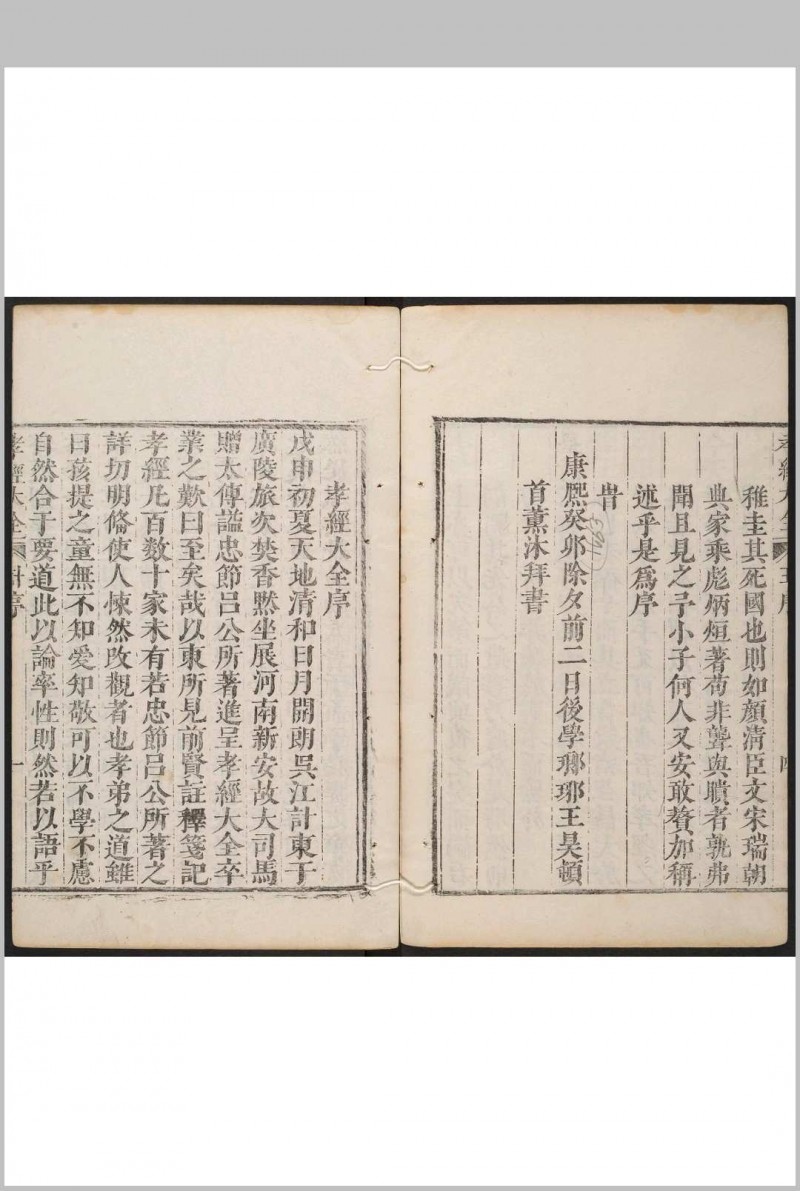 稚圭其死國也則如顏淸臣文宋瑞朝
典家乘彪炳烜著苟非聾與聵者孰弗
聞且見之予小子何人又安敢贅加稱
述乎是爲序
旹
康熈癸卯除夕前二日後學瑯琊王昊頓
首薰沐拜書
孝經大全序
戊申初夏天地淸和日月開朗吳江計東于
廣陵旅次焚香默坐展河南新安故大司馬
贈太傅諡忠節呂公所著進呈孝經大全卒
業之歎曰至矣哉以東所見前賢註釋箋記
孝經凡百數十家未有若忠節呂公所著之
詳切明偹使人悚然改觀者也孝弟之道雖
曰孩提之童無不知愛知敬可以不學不慮
自然合于要道此以論率性則然若以語乎
孝經大全 計序 一